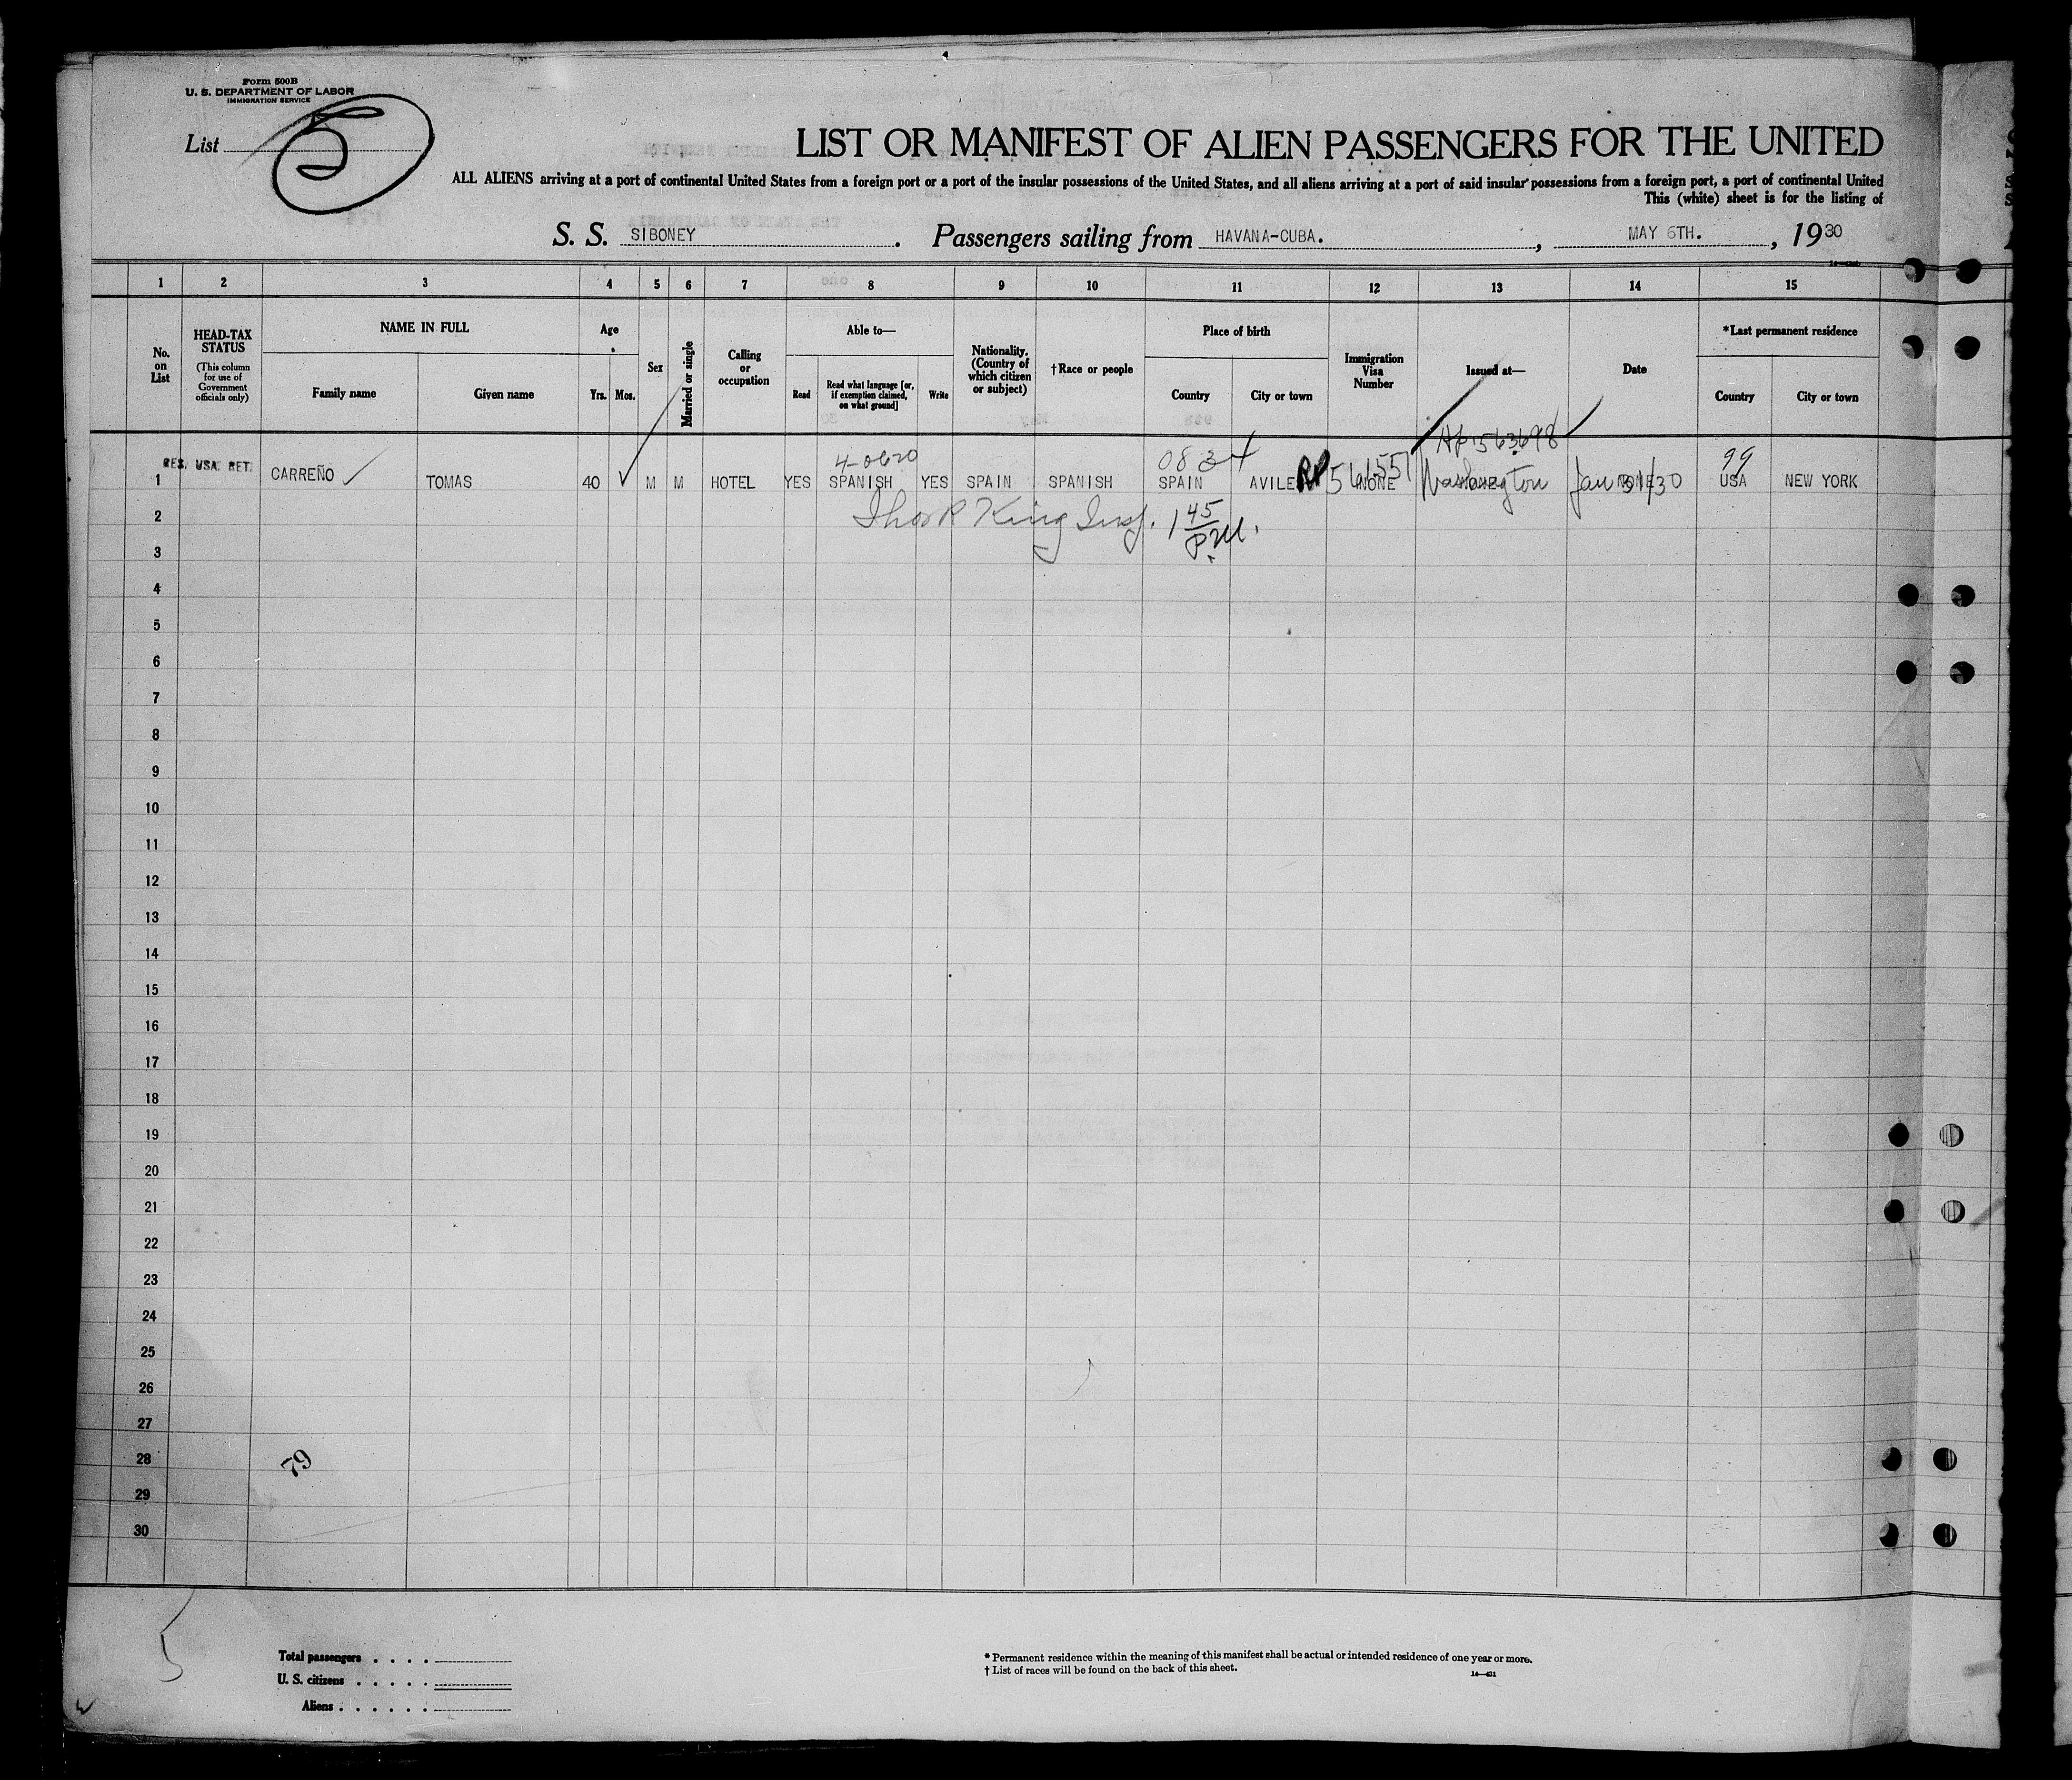 Form 500B
U. S. DEPARTMENT OF LABOR
IMMIGRATION SERVICE
List 5
LIST OR MANIFEST OF ALIEN PASSENGERS FOR THE UNITED
ALL ALIENS arriving at a port of continental United States from a foreign port or a port of the insular possessions of the United States, and all aliens arriving at a port of said insular possessions from a foreign port, a port of continental United
This (white) sheet is for the listing of
S. S. SIBONEY. Passengers sailing from HAVANA-CUBA., MAY 6TH., 1930
1 2 3 4 5 6 7 8 9 10 11 12 13 14 15
No. on List
HEAD-TAX STATUS
(This column for use of Government officials only)
NAME IN FULL
Family name
Given name
Age
Yrs. Mos.
Sex
Married or single
Calling or occupation
Able to—
Read
Read what language [or, if exemption claimed, on what ground]
Write
Nationality. (Country of which citizen or subject)
†Race or people
Place of birth
Country
City or town
Immigration Visa Number
Issued at—
Date
*Last permanent residence
Country
City or town
4-0620 083 563698 99
RES. USA. RET.
1 CARREÑO TOMAS 40 M M HOTEL YES SPANISH YES SPAIN SPANISH SPAIN AVILES RP 561551 NONE Washington Jan 31/30 NONE USA NEW YORK
2 Thos R King Insp. 1 45 P.M.
3
4
5
6
7
8
9
10
11
12
13
14
15
16
17
18
19
20
21
22
23
24
25
26
27
28
29
30
79
5
Total passengers . . . .
U. S. citizens . . . . .
Aliens . . . . . .
* Permanent residence within the meaning of this manifest shall be actual or intended residence of one year or more.
† List of races will be found on the back of this sheet.